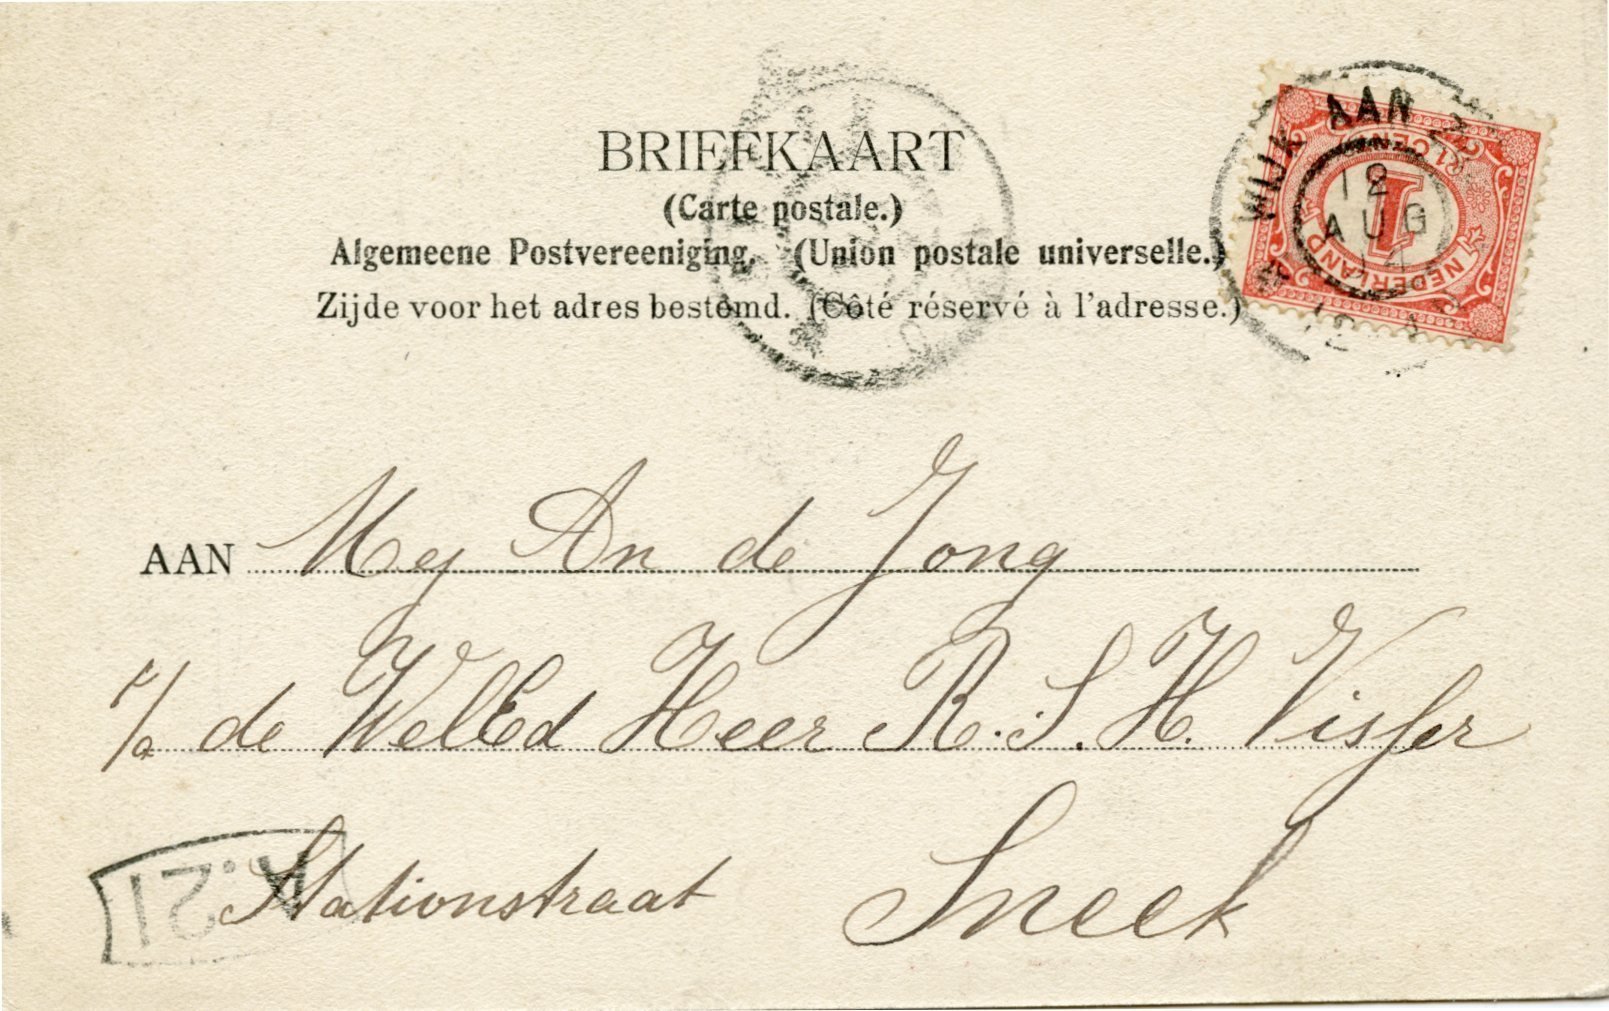 BRIEFKAART
(Carte postale.)
Algemeene Postvereeniging. (Union postale universelle.)
Zijde voor het adres bestemd. (Côté réservé à l'adresse.)
WIJK AAN
12
AUG
1 CENT
1
NEDERLAND
AAN Mej An de Jong
p/a de WelEd Heer R. S. H. Visser
Stationstraat Sneek
A.21